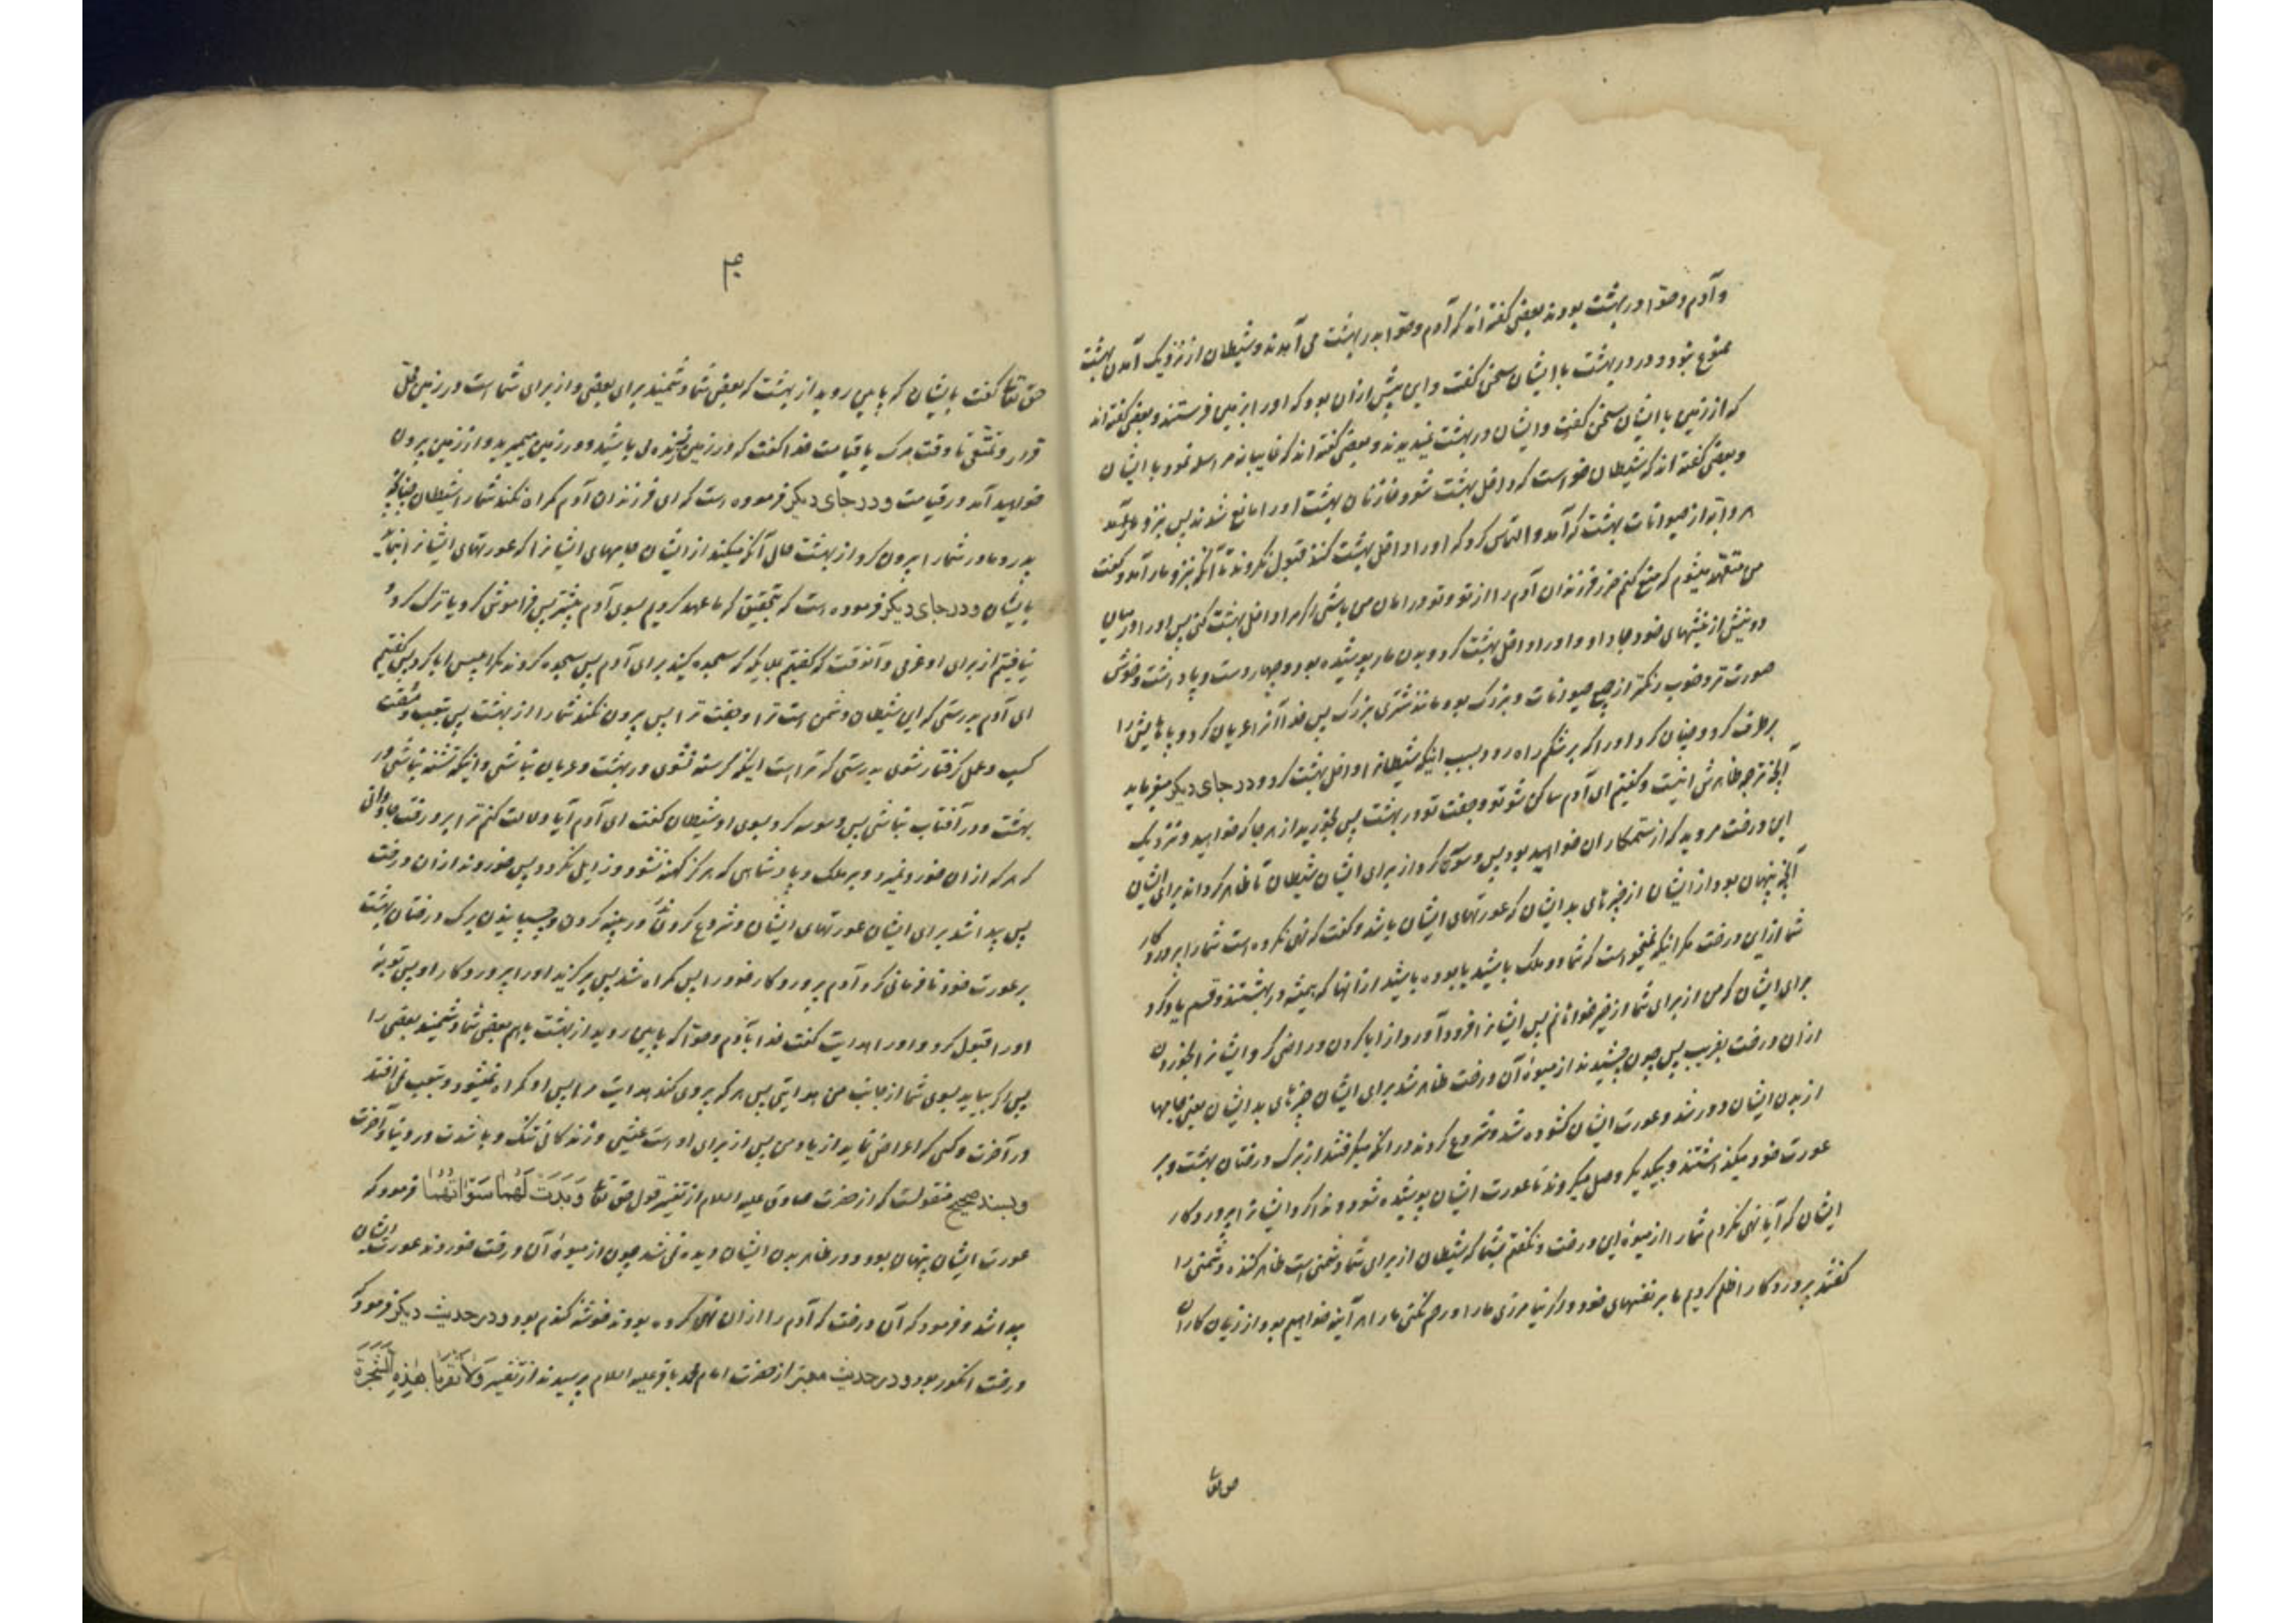 و آدم و حوّا در بهشت بودند بعضی گفته‌اند که آدم و حوّا بدر بهشت می‌آمدند و شیطان از نزدیک آمدن بهشت
ممنوع نبود و در در بهشت با ایشان سخن گفت و این پیش ازان بود که او را بزمین فرستند و بعضی گفته‌اند
که از زمین با ایشان سخن گفت و ایشان در بهشت بودند و بعضی گفته‌اند که غایبانه مراسله نمود با ایشان
و بعضی گفته‌اند که شیطان خواست که داخل بهشت شود خازنان بهشت او را مانع شدند پس نزد
هر دابه از حیوانات بهشت که آمد و التماس کرد که او را داخل بهشت کنند قبول نکردند تا آنکه بنزد مار آمد و گفت
من متعهد میشوم که منع کنم ضرر فرزندان آدم را از تو و تو در امان من باشی اگر مرا داخل بهشت کنی پس او را در میان
دو نیش از نیشهای خود جا داد و او را داخل بهشت کرد و بدن مار پوشیده بود و چهار دست و پا داشت و خوش
صورت‌تر و خوب رنگتر از جمیع حیوانات و بزرگ بود مانند شتری بزرگ پس خدا آنرا عریان کرد و پاهایش را
برطرف کرد و چنان کرد او را که بر شکم راه رود بسبب اینکه شیطانرا داخل بهشت کرد و در جای دیگر میفرماید
آنچه ترجمه ظاهرش اینست و گفتیم ای آدم ساکن شو تو و جفت تو در بهشت پس بخورید از هر جا که خواهید و نزدیک
این درخت مروید که از ستمکاران خواهید بود پس وسوسه کرد از برای ایشان شیطان تا ظاهر گرداند برای ایشان
آنچه پنهان بود از ایشان از چیزهای بد ایشان که عورتهای ایشان باشد و گفت که نهی نکرده است شما را پروردکار
شما ازین درخت مگر اینکه نمیخواست که شما دو ملک باشید یا بوده باشید از آنها که همیشه در بهشتند و قسم یاد کرد
برای ایشان که من از برای شما از خیر خواهانم پس ایشانرا فرود آورد از ابا کردن و راضی کرد ایشانرا بخوردن
ازان درخت بفریب پس چون چشیدند از میوۀ آن درخت ظاهر شد برای ایشان چیزهای بد ایشان یعنی جامها
از بدن ایشان دور شد و عورت ایشان گشوده شد و شروع کردند در آنکه میگرفتند از برگ درختان بهشت و بر
عورت خود میگذاشتند و بیکدیگر وصل میکردند تا عورت ایشان پوشیده شود و ندا کرد ایشانرا پروردکار
ایشان که آیا نهی نکردم شما را از میوۀ این درخت و نگفتم بشما که شیطان از برای شما دشمنی است ظاهر کننده دشمنی را
گفتند پروردکارا ظلم کردیم ما بر نفسهای خود و اگر نیامرزی ما را و رحم نکنی ما را هر آینه خواهیم بود از زیان کاران
حق تعا
حق تعا گفت بایشان که پایین روید از بهشت که بعضی شما دشمنید برای بعضی و از برای شما است در زمین محل
قرار و تمتّعی تا وقت مرگ یا قیامت خدا گفت که در زمین زنده می باشید و در زمین میمیرید و از زمین بیرون
خواهید آمد در قیامت و در جای دیگر فرموده است که ای فرزندان آدم گمراه نکند شما را شیطان چنانکه
پدر و مادر شما را بیرون کرد از بهشت حالی آنکه میکند از ایشان جامهای ایشانرا که عورتهای ایشانرا بنماید
بایشان و در جای دیگر فرموده است که بتحقیق که ما عهد کردیم بسوی آدم پیشتر پس فراموش کرد یا ترک کرد و
نیافتیم از برای او عزمی و آنوقت که گفتیم بملائکه که سجده کنید برای آدم پس سجده کردند مگر ابلیس ابا کرد پس گفتیم
ای آدم بدرستی که این شیطان دشمن است ترا و جفت ترا پس بیرون نکند شما را از بهشت پس بتعب و مشقت
کسب و عمل گرفتار شوی بدرستی که تر است اینکه گرسنه نشوی در بهشت و عریان نباشی و اینکه تشنه نباشی در
بهشت و در آفتاب نباشی پس وسوسه کرد بسوی او شیطان گفت ای آدم آیا دلالت کنم ترا بر درخت جاودانی
که هر که ازان خورد نمیرد و بر ملک و پادشاهی که هرگز کهنه نشود و زایل نگردد پس خوردند ازان درخت
پس پیدا شد برای ایشان عورتهای ایشان و شروع کردند در پینه کردن و چسپانیدن برگ درختان بهشت
بر عورت خود نافرمانی کرد آدم پروردکار خود را پس گمراه شد پس برگزید او را پروردکار او پس توبۀ
او را قبول کرد و او را هدایت گفت خدا بآدم و حوّا که پایین روید از بهشت باهم بعضی شما دشمنید بعضی را
پس اگر بیاید بسوی شما از جانب من هدایتی پس هر که پیروی کند هدایت مرا پس او گمراه نمیشود و بتعب نمی افتد
در آخرت و کسی که اعراض نماید از یاد من پس از برای او است عیشی و زندگانی تنگ و با شدت در دنیا و آخرت
و بسند صحیح منقولست که از حضرت صادق علیه السلام از تفسیر قول حق تعا وَبَدَتْ لَهُمَا سَوْآتُهُمَا فرمود که
عورت ایشان پنهان بود و در ظاهر بدن ایشان دیده نمی شد چون از میوۀ آن درخت خوردند عورت ایشان
پیدا شد و فرمود که آن درخت که آدم را ازان نهی کرده بودند خوشۀ گندم بود و در حدیث دیگر فرمود که
درخت انگور بود و در حدیث معتبر از حضرت امام محمد باقر علیه السلام پرسیدند از تفسیر وَلَا تَقْرَبَا هٰذِهِ الشَّجَرَةَ